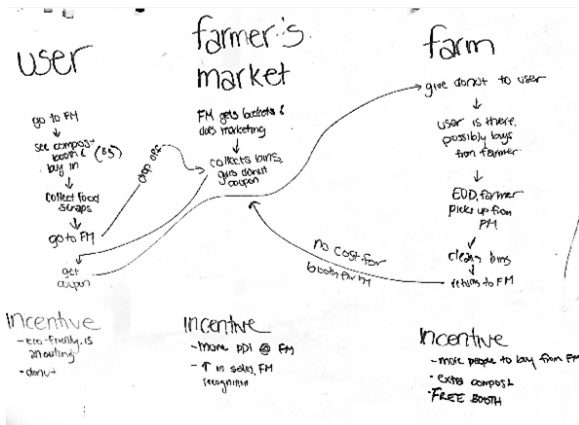 user
go to FM
↓
see compost
booth & ($5)
buy in
↓
collect food
scraps
↓
go to FM
drop off
get
coupon
incentive
- eco-friendly, is
an outing
- donut
farmer's
market
FM gets buckets &
does marketing
↓
collects bins,
gives donut
coupon
no cost for
booth farm
incentive
- more ppl @ FM
- ↑ in sales, FM
recognition
farm
give donut to user
↓
user is there,
possibly buys
from farmer
↓
EOD, farmer
picks up from
FM
↓
cleans bins
→ returns to FM
incentive
- more people to buy from FM
- extra compost
- FREE BOOTH